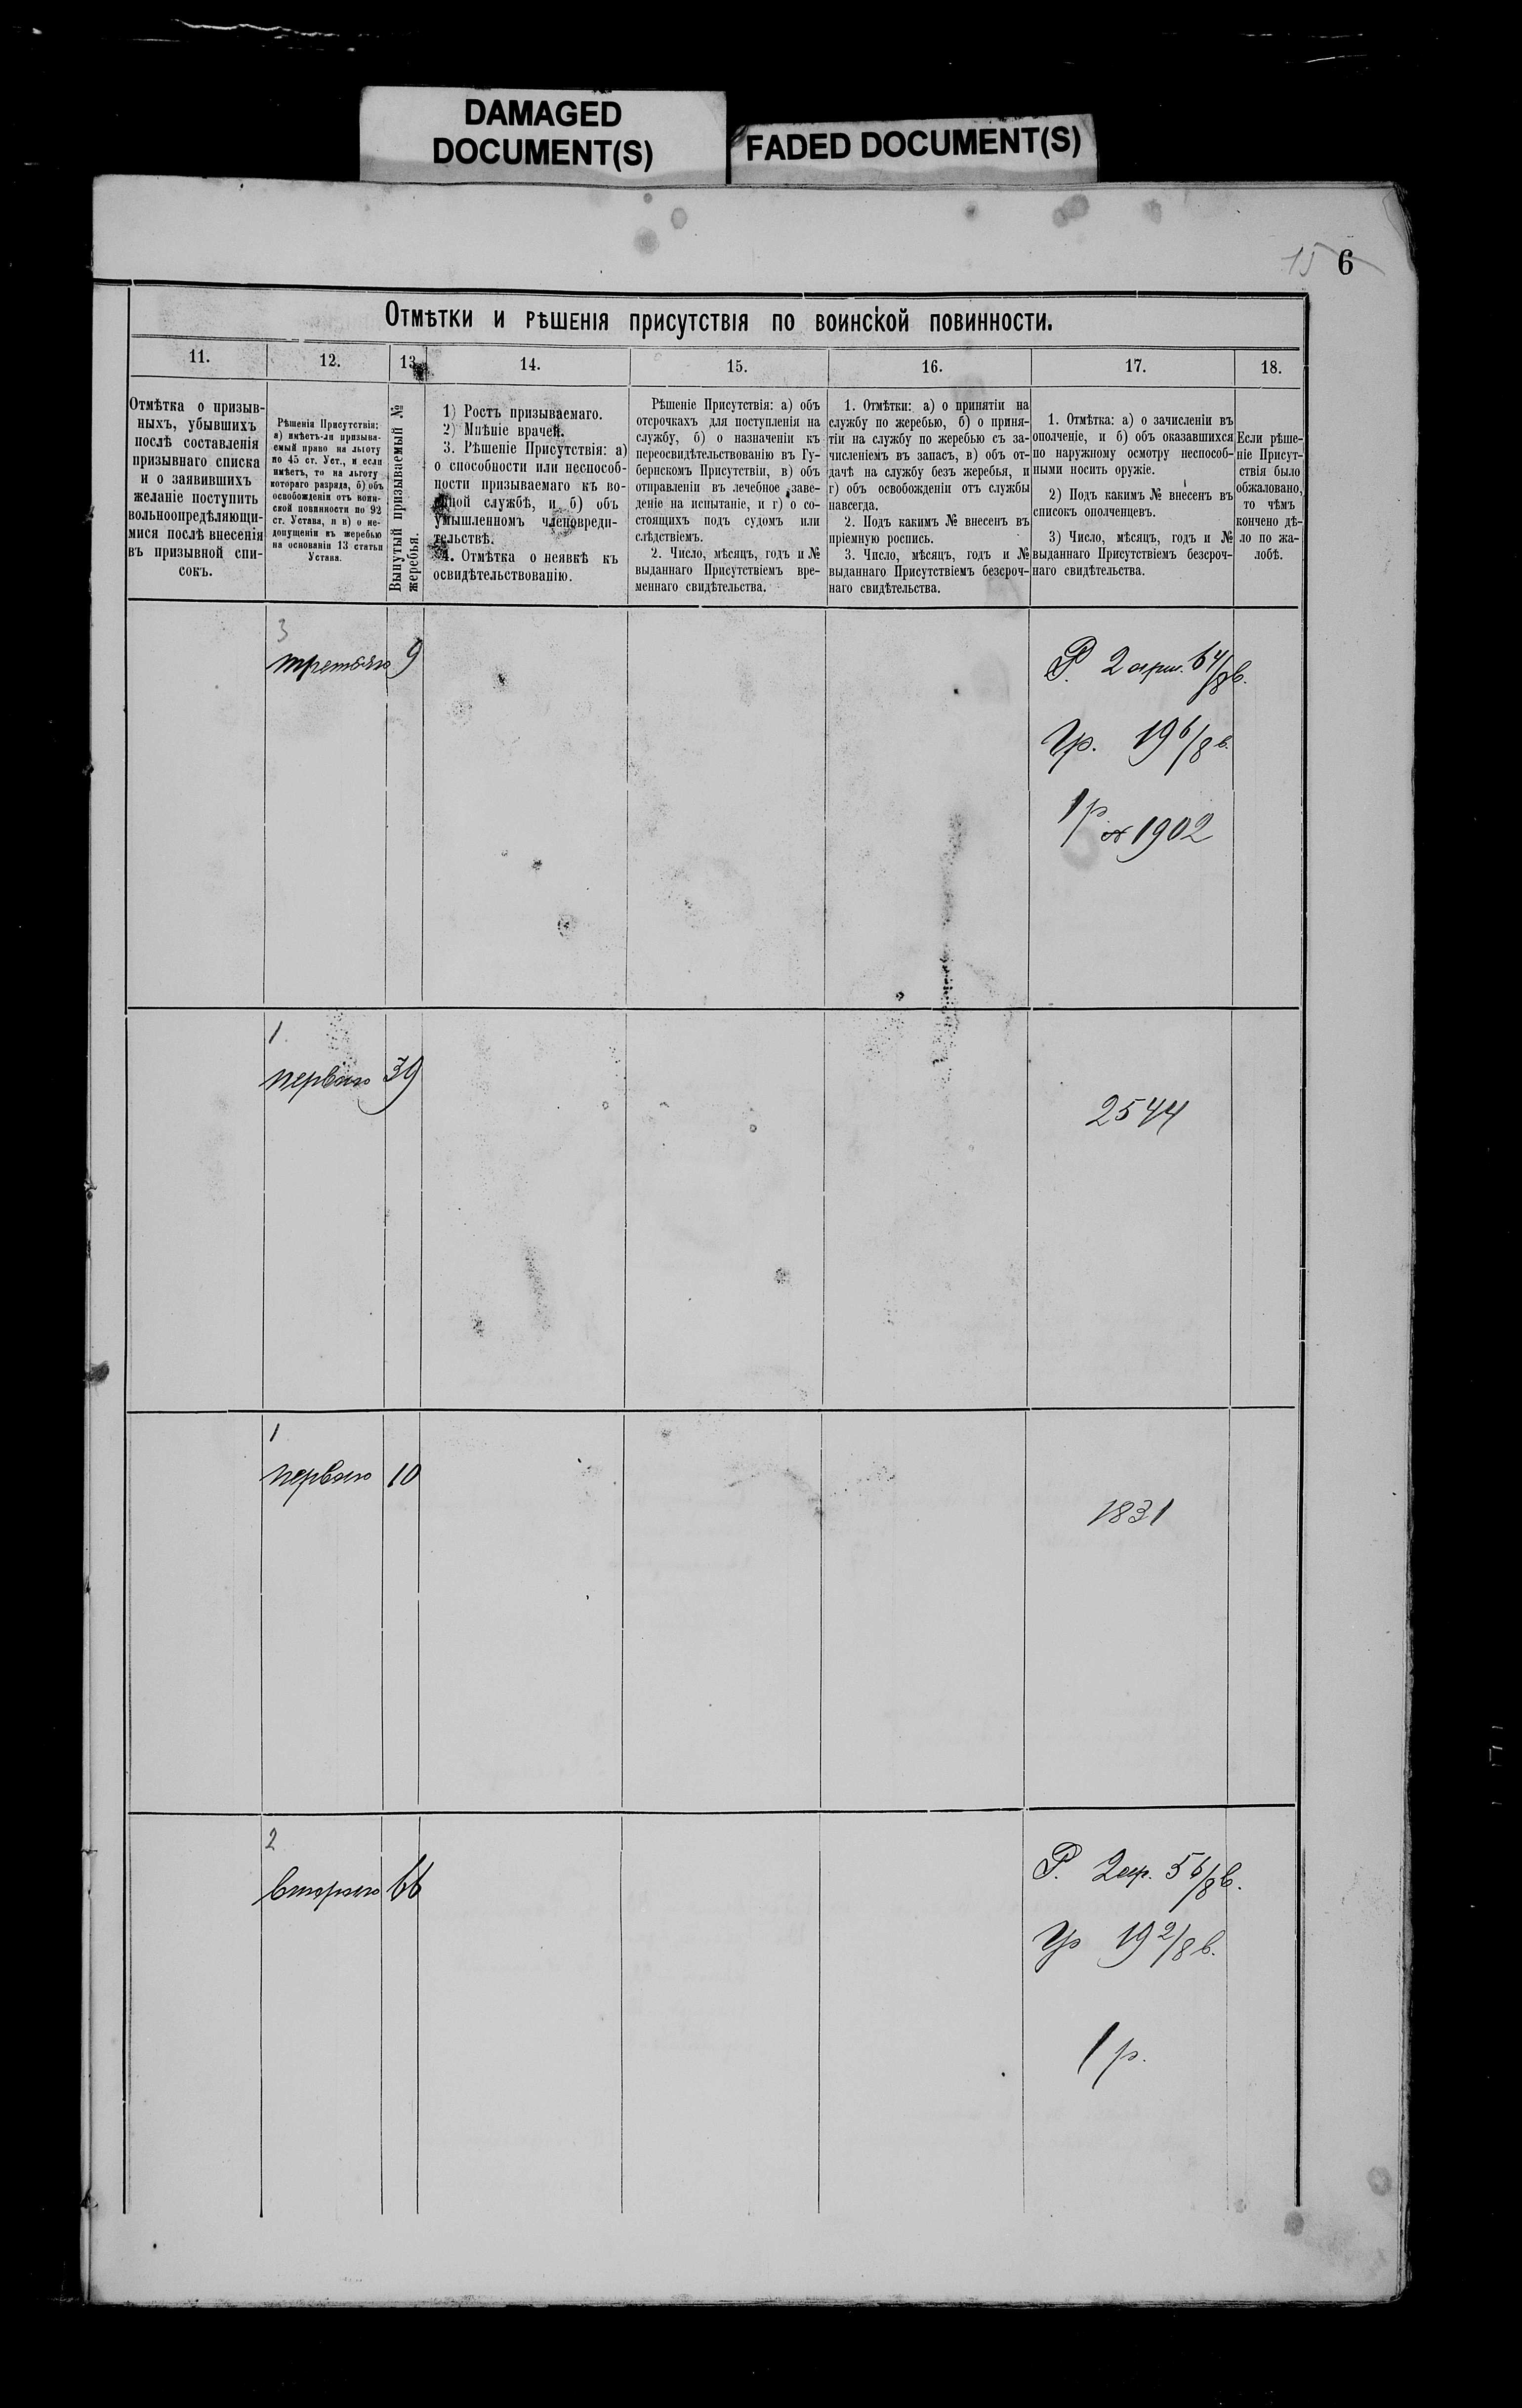 DAMAGED
DOCUMENT(S)
FADED DOCUMENT(S)
15 6
Отмѣтки и рѣшенія присутствія по воинской повинности.
11.
12.
13
14.
15.
16.
17.
18.
Отмѣтка о призыв-
ныхъ, убывшихъ
послѣ составленія
призывнаго списка
и о заявившихъ
желаніе поступить
вольноопредѣляющи-
мися послѣ внесенія
въ призывной спи-
сокъ.
Рѣшенія Присутствія:
а) имѣетъ-ли призыва-
емый право на льготу
по 45 ст. Уст., и если
имѣетъ, то на льготу
котораго разряда, б) объ
освобожденіи отъ воин-
ской повинности по 92
ст. Устава, и в) о не-
допущеніи къ жеребью
на основаніи 13 статьи
Устава.
Вынутый призываемый №
жеребья.
1) Ростъ призываемаго.
2) Мнѣніе врачей.
3. Рѣшеніе Присутствія: а)
о способности или неспособ-
ности призываемаго къ во-
енной службѣ, и б) объ
умышленномъ членовреди-
тельствѣ.
4. Отмѣтка о неявкѣ къ
освидѣтельствованію.
Рѣшеніе Присутствія: а) объ
отсрочкахъ для поступленія на
службу, б) о назначеніи къ
переосвидѣтельствованію въ Гу-
бернскомъ Присутствіи, в) объ
отправленіи въ лечебное заве-
деніе на испытаніе, и г) о со-
стоящихъ подъ судомъ или
слѣдствіемъ.
2. Число, мѣсяцъ, годъ и №
выданнаго Присутствіемъ вре-
меннаго свидѣтельства.
1. Отмѣтки: а) о принятіи на
службу по жеребью, б) о приня-
тіи на службу по жеребью съ за-
численіемъ въ запасъ, в) объ от-
дачѣ на службу безъ жеребья, и
г) объ освобожденіи отъ службы
навсегда.
2. Подъ какимъ № внесенъ въ
пріемную роспись.
3. Число, мѣсяцъ, годъ и №
выданнаго Присутствіемъ безсроч-
наго свидѣтельства.
1. Отмѣтка: а) о зачисленіи въ
ополченіе, и б) объ оказавшихся
по наружному осмотру неспособ-
ными носить оружіе.
2) Подъ какимъ № внесенъ въ
списокъ ополченцевъ.
3) Число, мѣсяцъ, годъ и №
выданнаго Присутствіемъ безсроч-
наго свидѣтельства.
Если рѣше-
ніе Присут-
ствія было
обжаловано,
то чѣмъ
кончено дѣ-
ло по жа-
лобѣ.
3
третьяго 9
Р. 2 арш. 6 4/8 в.
Гр. 19 6/8 в.
1 р
1902
1
перваго 39
2544
1
перваго 10
1831
2
втораго 66
Р. 2 ар. 5 6/8 в.
Гр 19 2/8 в.
1 р.